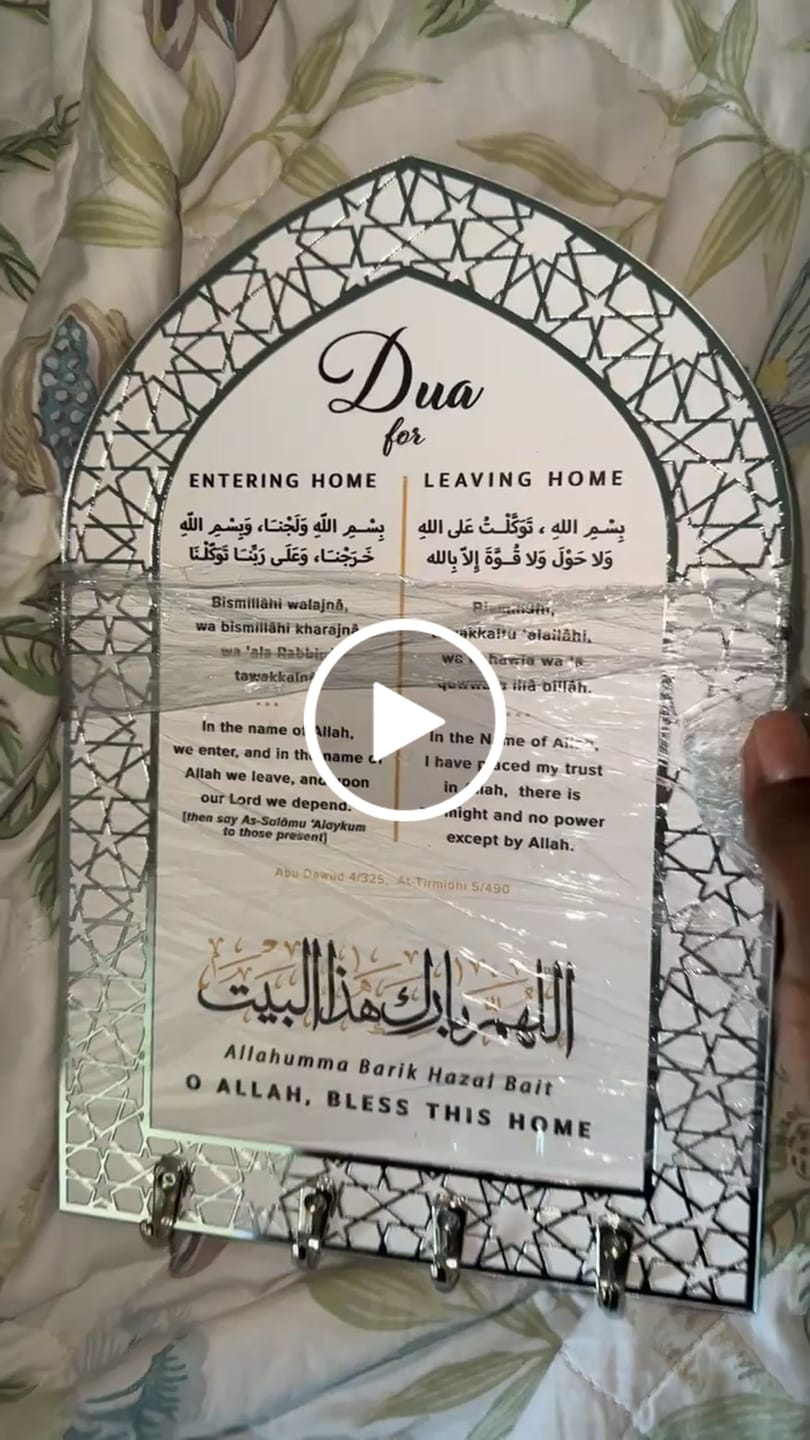 Dua
for
ENTERING HOME
بِسْمِ اللّهِ وَلَجْنَا، وَبِسْمِ اللّهِ
خَرَجْنَا، وَعَلَى رَبِّنَا تَوَكَّلْنَا
Bismillâhi walajnâ,
wa bismillâhi kharajnâ
wa 'ala
In the name of Allah,
we enter, and in the name of
Allah we leave, and upon
our Lord we depend.
[then say As-Salâmu 'Alaykum
to those present]
LEAVING HOME
بِسْمِ اللهِ ، تَوَكَّلْتُ عَلى اللهِ
وَلا حَوْلَ وَلا قُوَّةَ إِلاّ بِالله
'alallâhi,
illâ billâh.
In the Name of
I have placed my trust
in there is
might and no power
except by Allah.
Abu Dawud 4/325, At-Tirmidhi 5/490
اللهم بارك هذا البيت
Allahumma Barik Hazal Bait
O ALLAH, BLESS THIS HOME